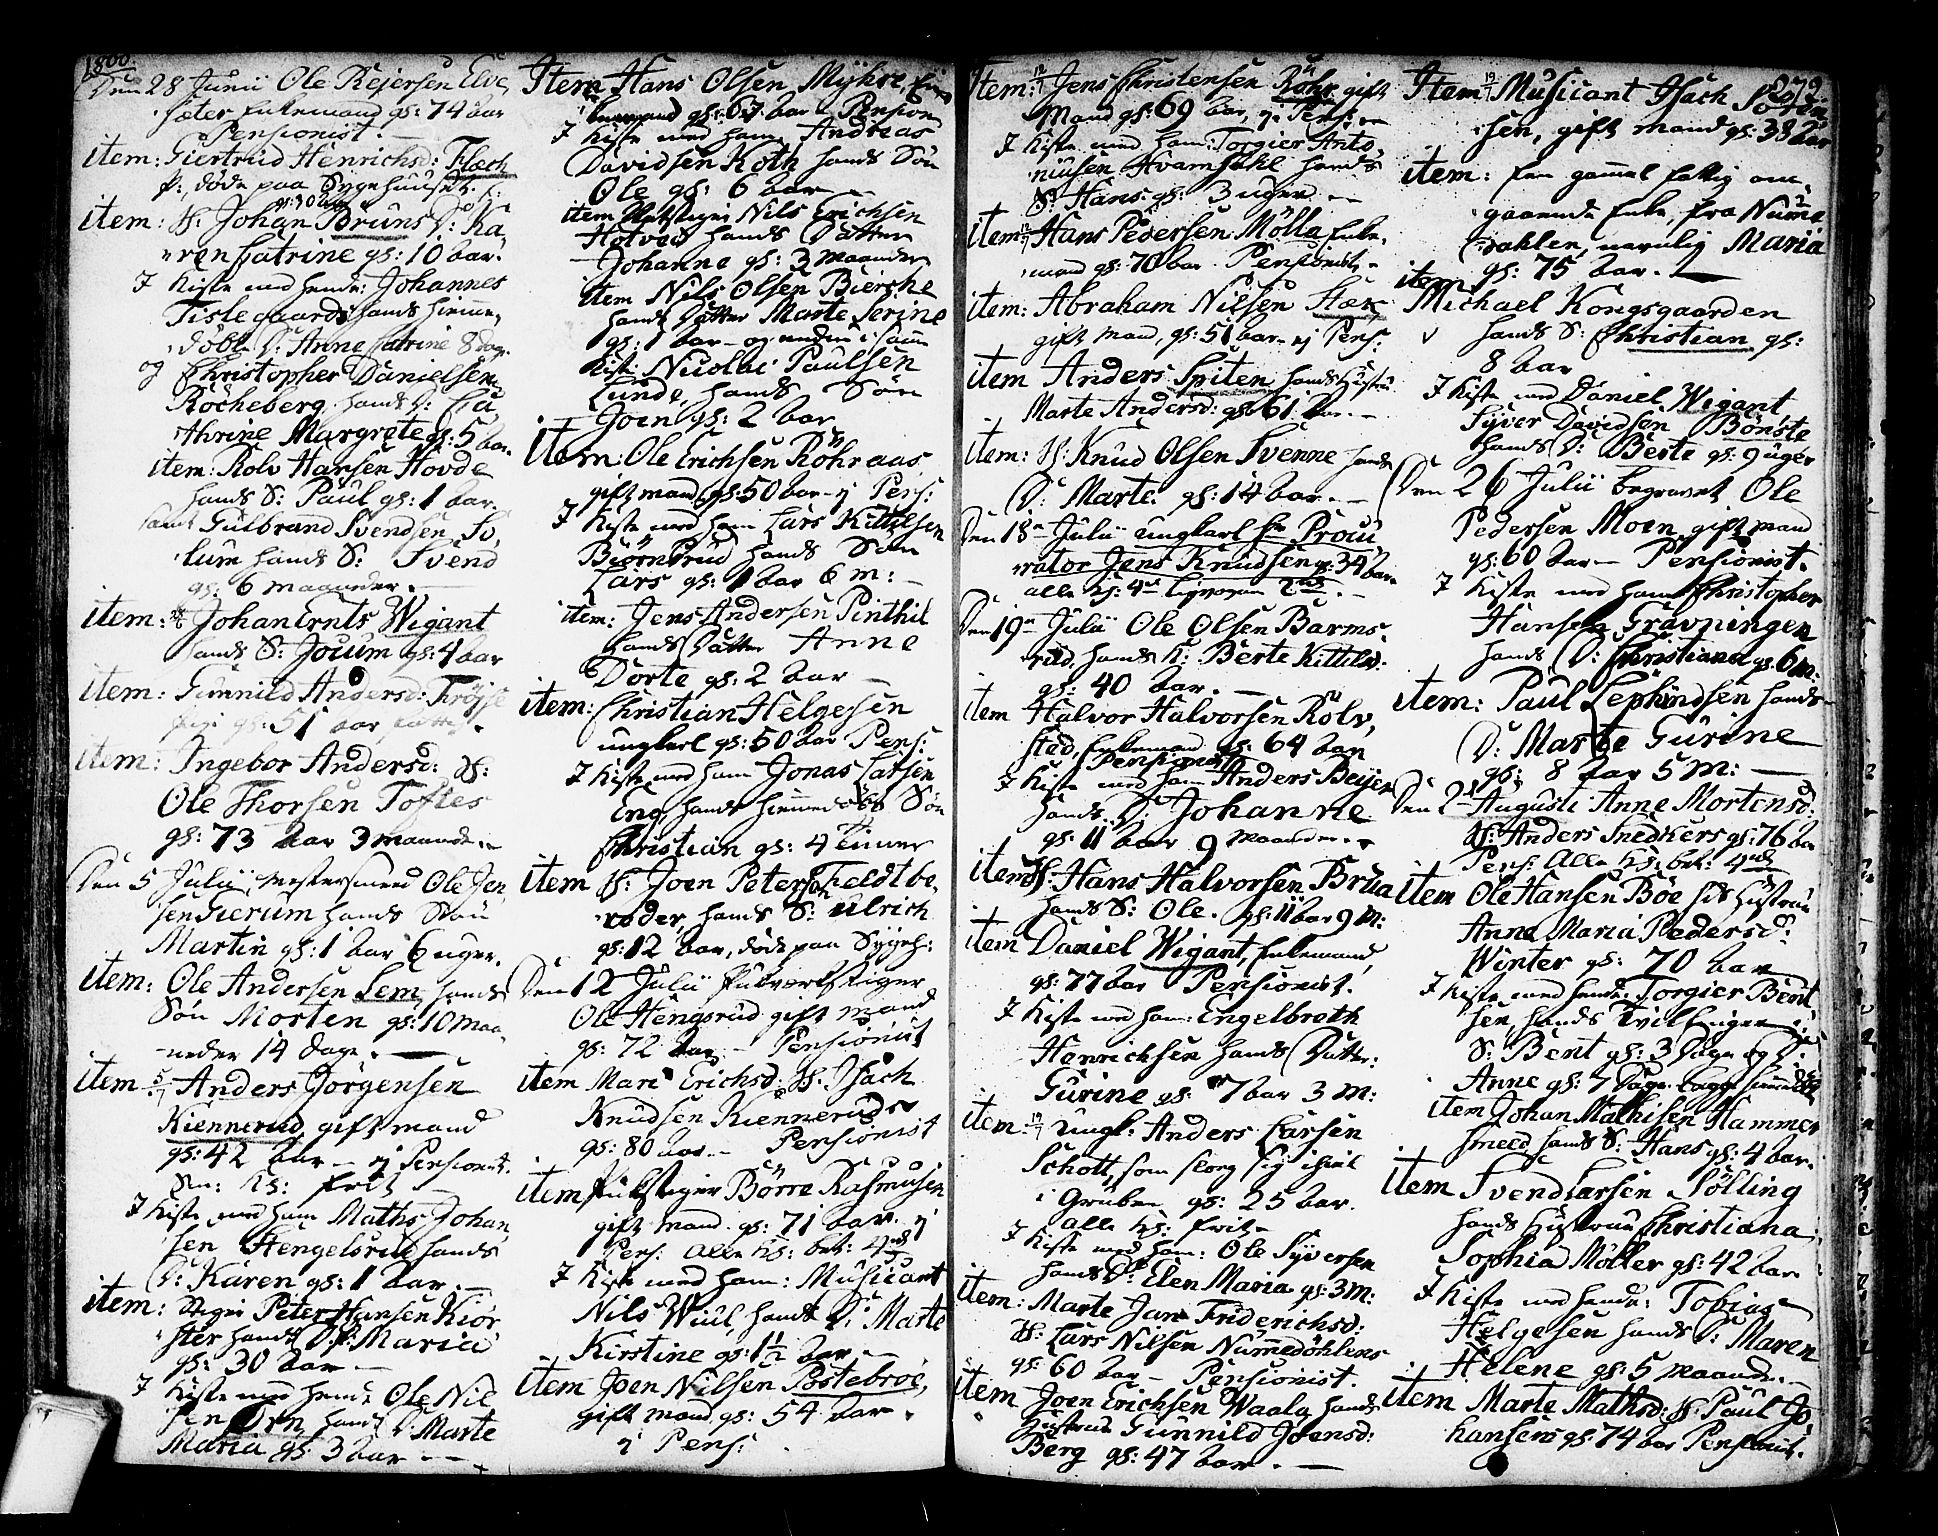 1800.
Den 28 Junii Ole Rejersen Elve,
sæter Enkemand gs: 74 aar
Pensionist.
item: Giertrud Henrichsd: Flach
P: døde paa Sygehuuset.
gs: 30 aar
item: H: Johan Bruns D: Ka
ren Catrine gs: 10 aar.
I Kiste med hende: Johannes
Tislegaards hands hiemme,
døbte D: Anne Catrine 8 dage
og Christopher Danielsen
Röcheberg hands D: Ca,
thrine Margrete gs: 5 aar
item: Rolv Hansen Hovde
hands S: Paul gs: 1 aar.
samt Gulbrand Svendsen
lum hands S: Svend
gs: 6 maaneder.
item: Johan Ernts Wigant
hands S: Jouum gs: 4 aar
item: Gunnild Andersd: Tröjse
gs: 51 aar
item: Ingebor Andersd: H:
Ole Thorsen Toftes
gs: 73 aar 3 maaneder
Den 5 Julii, Mestersmeed Ole Jen,
sen Gierum hands Sön
Martin gs: 1 aar 6 uger.
item: Ole Andersen Lem hands
Sön Morten gs: 10 maa
neder 14 dage.
item 5/7 Anders Jörgensen
Kiennerud gift mand
gs: 42 aar ej Pensionist.
Ks: frit
I Kiste med ham Maths Johan
sen Hengelsrud hands
D: Karen gs: 1 aar.
item: Stiger Peter Hansen Kiör
ster hands D: Maria
gs: 30 aar
I Kiste med hende Ole Niel
sen Örn hands D: Marte
Maria gs: 3 aar
Item Hans Olsen Myhre,
Enkemand gs: 67 aar Pension
I Kiste med ham Andreas
Davidsen Koth hands Sön
Ole gs: 6 aar
item Nils Erichsen
Hotved hands Datter
Johanne gs: 3 maaneder
item Nils Olsen Bierche
hands Datter Marte Serine
gs: 1 aar og enden i samme
Kiste Nicolai Paulsen
Lunde, hands Sön
Joen gs: 2 aar
Item: Ole Erichsen Röhraas
gift mand gs: 50 aar ej Pens:
I Kiste med ham Lars Kittilsen
Biörnerud hands Sön
Lars gs: 1 aar 6 m:
item: Jens Andersen Pinthil
hands Datter Anne
Dorte gs: 2 aar
item: Christian Helgesen
ungkarl gs: 50 aar Pens:
I Kiste med ham Jonas Larsen
Eng, hands hiemmedøbte Sön
Christian gs: 4 Timer
item H: Joen Petersen Feldtbe,
reder, hands S: Ulrich
gs: 12 aar, døde paa Sygeh:
Den 12 Julii Pukværkstiger
Ole Hengsrud gift mand
gs: 72 aar Pensionist
item Mari Erichsd: H: Isach
Knudsen Kienneruds
gs: 80 aar Pensionist
item Pukstiger Börre Rasmusen
gift mand gs: 71 aar. ej
Pens: alle Ks: bet: 4
I Kiste med ham: Musicant
Nils Wiul, hands D: Marte
Kirstine gs: 1 1/2 aar
item Joen Nilsen Postebroe,
gift mand gs: 54 aar
ej Pens:
Item: 12/7 Jens Christensen Röhr gift
Mand gs: 69 aar, ej Pens:
I Kiste med ham Torgier Anto,
niusen Hvamsahl hands
S: Hans gs: 3 uger
item 12/7 Hans Pedersen Mölla Enke,
mand gs: 70 aar Pensionist
item: Abraham Nielsen Stær
gift mand, gs: 51 aar ej Pens:
item Anders Spiten hands Hustru
Marte Andersd: gs: 61 aar.
item: H: Knud Olsen Svenne hands
D: Marte gs: 14 aar.
Den 18 Julii ungkarl Hr Procu
rator Jens Knudsen gs: 34 aar
alle Ks:
Den 19 Julii Ole Olsen Barms,
rud, hands K: Berte Kittilsd:
gs: 40 aar.
item Halvor Halvorsen Rolv,
stad, Enkemand gs: 64 aar
Pensionist
I Kiste med ham Anders Beyer
hands D: Johanne
gs: 11 aar 9 maaneder
item H: Hans Halvorsen Brua
hands S: Ole. gs: 11 aar 9 M:
item Daniel Wigant, Enkemand,
gs: 77 aar Pensionist.
I Kiste med ham: Engelbreth
Henrichsen hands Datter:
Gurine gs: 7 aar 3 m:
item: 19/7 Ungk: Anders Larsen
Schott, som slog sig ihiel
i Gruben gs: 25 aar.
alle Ks: frit
I Kiste med ham: Ole Syversen
hands D: Elen Maria gs: 3 m:
item: Marte Jane Friderichsd:
H: Lars Nilsen Nummedöhlens
gs: 60 aar Pensionist.
item Joen Erichsen Waala hands
Hustrue Gunnild Joensd:
Berg gs: 47 aar.
279.
Item 19/7 Musicant Isach Sören
sen, gift mand gs: 38 aar
item: en gammel fattig om,
gaaende Enke, fra Nume
dahlen, navnlig Maria
gs: 75 aar.
item
Michael Kongsgaarden
hands S: Christian gs:
8 aar
I Kiste med Daniel Wigant
Syver Davidsen Bönste
hands D: Berte gs: 9 uger
Den 26 Julii begravet Ole
Pedersen Moen gift mand
gs: 60 aar Pensionist.
I Kiste med ham Christopher
Hansen Gravningen
hands D: Christiana gs: 6 m:
item: Paul Sephindsen hands
D: Marte Gurine
gs: 8 aar 5 M:
Den 2 Augusti Anne Mortensd:
H: Anders Snedkers gs: 76 aar
Pens: alle Ks: bet: 4
item Ole Hansen Böe hs Hustrue
Anne Maria Pedersd:
Winter gs: 70 aar
I Kiste med hende: Torgier Bent
sen, hands Tvillinger
S: Bent gs: 3 dage og D:
Anne gs: 7 dage. begge hiemmedøbt
item Johan Mathisen Hammer
smeed hands S: Hans gs: 4 aar.
item Svend Larsen Sölling
hands Hustrue Christiana
Sophia Möller gs: 42 aar
I Kiste med hende: Tobias
Helgesen hands D: Maren
Helene gs: 5 maaneder
item Marte Mathsd: H: Paul Jo,
hansens gs: 74 aar Pensionist.